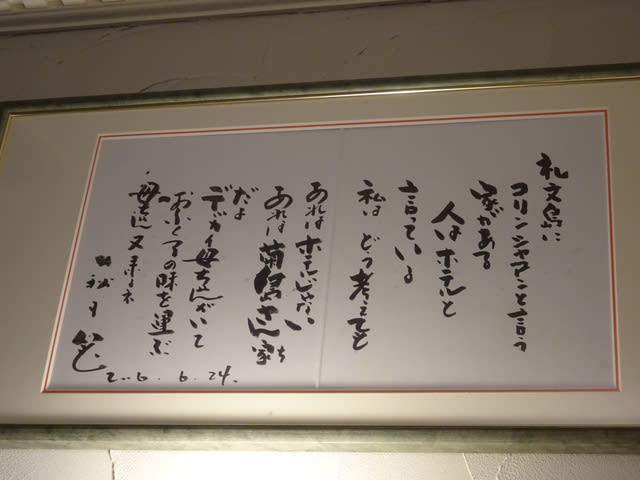 礼文島に
コリンシアンと言う
家がある
人はホテルと
言っている
私は どう考えても
あれはホテルじゃない
あれは菊島さん家
だよ
デッカイ母ちゃんがいて
おふくろの味を運ぶ
母ちゃん 又 来るネ
2006.6.24.